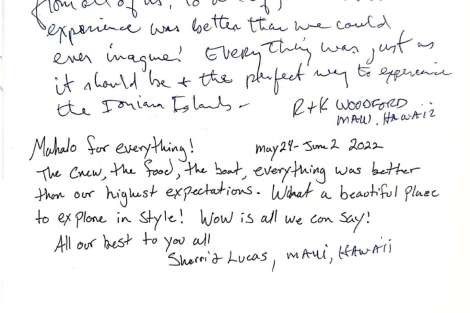 from all of us, to
experience was better than we could
ever imagine! Everything was just as
it should be + the perfect way to experience
the Ionian Islands -
R+K WOODFORD
MAUI, HAWAII
Mahalo for everything!
may 29 - June 2 2022
The crew, the food, the boat, everything was better
then our highest expectations. What a beautiful place
to explore in style! Wow is all we can say!
All our best to you all
Lucas, MAUI, HAWAII